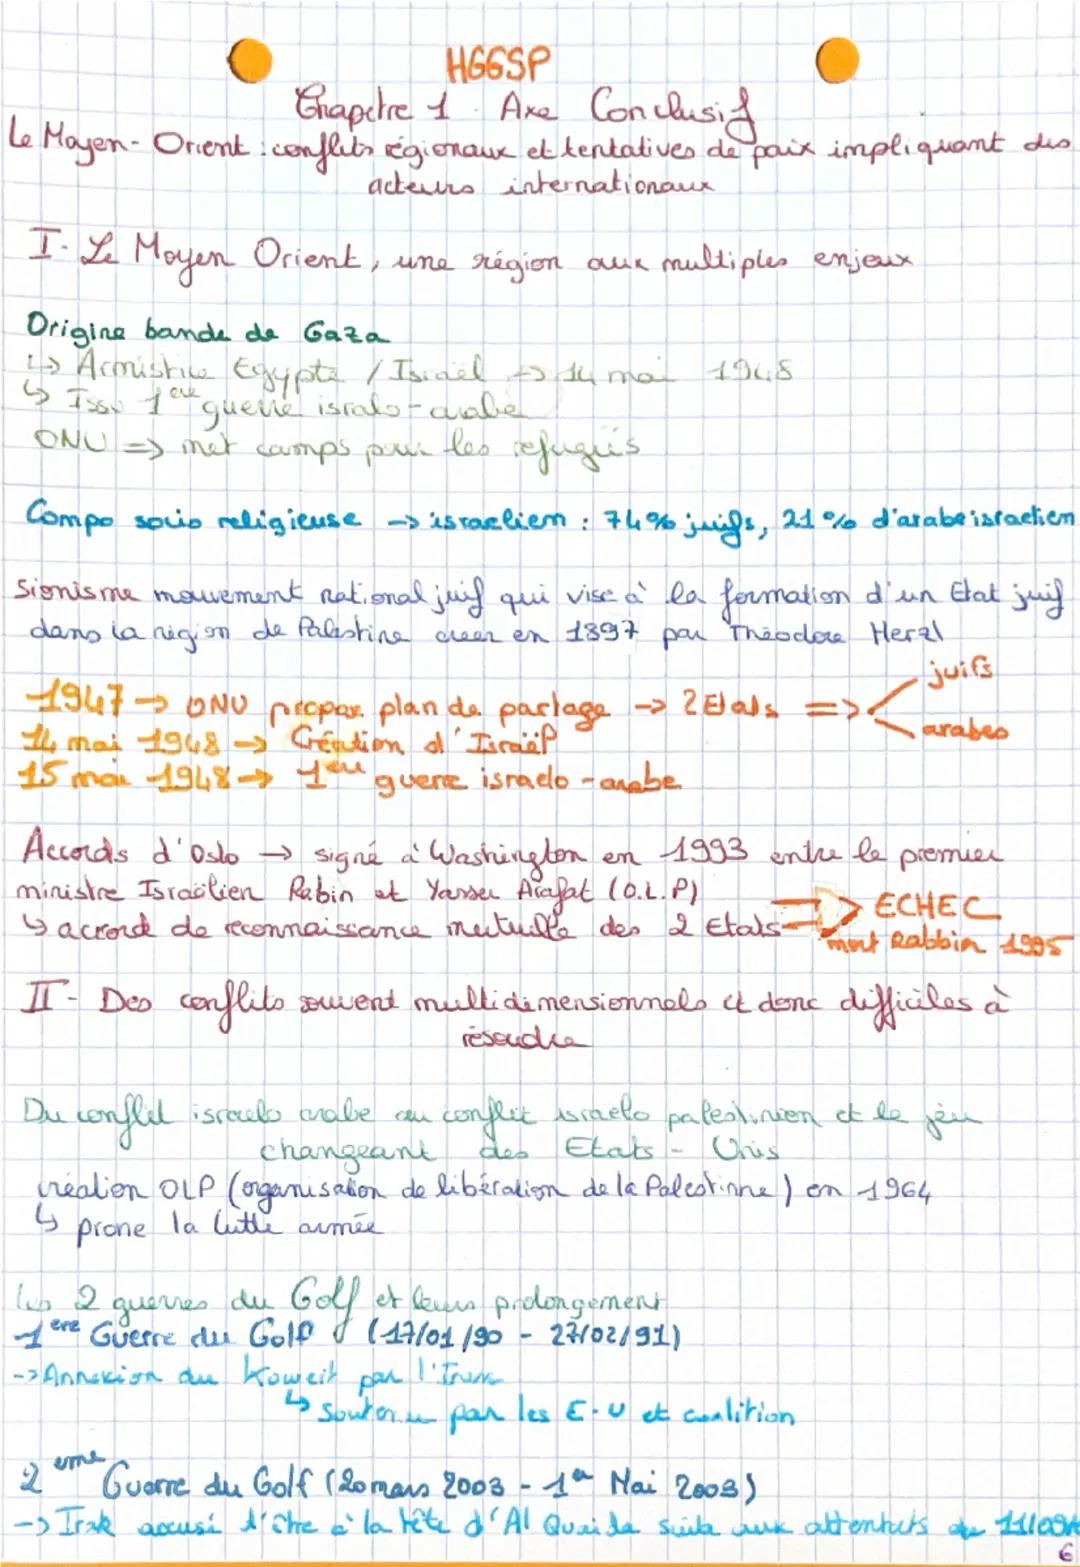 HGGSP
Chapitre 1. Axe Conclusif
Le Moyen-Orient : conflits régionaux et tentatives de paix impliquant des
acteurs internationaux
I- Le Moyen Orient, une région aux multiples enjeux
Origine bande de Gaza
↳ Armistice Egypte / Israël → 14 mai 1948
↳ Issu 1ère guerre israelo-arabe
ONU => met camps pour les refugiés
Compo socio religieuse -> israelien : 74% juifs, 21% d'arabe israelien
Sionisme mouvement national juif qui vise à la formation d'un Etat juif
dans la région de Palestine creer en 1897 par Théodore Herzl
1947 → ONU propose plan de partage -> 2 Etats => juifs
arabes
14 mai 1948 → Création d'Israël
15 mai 1948 → 1ère guerre israelo-arabe
Accords d'Oslo → signé à Washington en 1993 entre le premier
ministre Israëlien Rabin et Yasser Arafat (O.L.P)
↳ accord de reconnaissance mutuelle des 2 Etats => ECHEC
mort Rabbin 1995
II- Des conflits souvent multidimensionnels et donc difficiles à
résoudre
Du conflit israelo arabe au conflit israelo palestinien et le jeu
changeant des Etats-Unis
création OLP (organisation de libération de la Palestinne) en 1964
↳ prone la lutte armée
les 2 guerres du Golf et leurs prolongement
1ère Guerre du Golf (17/01/90 - 27/02/91)
-> Annexion du Koweit par l'Irak
↳ Soutenu par les E.U et coalition
2eme Guerre du Golf (20 mars 2003 - 1er Mai 2003)
-> Irak accusé d'être à la tête d'Al Quaida suite aux attentats du 11/09/
6